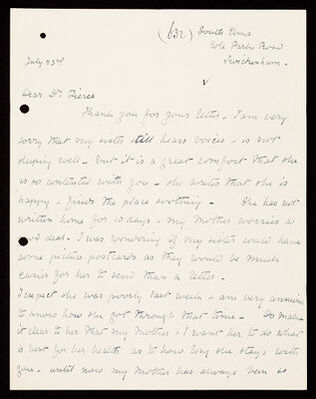 (632) South Elms
Cole Park Road
Twickenham.
July 23rd
Dear Dr. Pierce
Thank you for your letter. I am very
sorry that my sister still hears voices & is not
sleeping well - but it is a great comfort that she
is so contented with you - she writes that she is
happy & finds the place soothing. She has not
written home for 10 days & my Mother worries a
good deal. I was wondering if my sister could have
some picture postcards as they would be much
easier for her to send than a letter.
I expect she was poorly last week & am very anxious
to know how she got through that time. Do make
it clear to her that my Mother & I want her to do what
is best for her health as to how long she stays with
you. until now my Mother has always been so